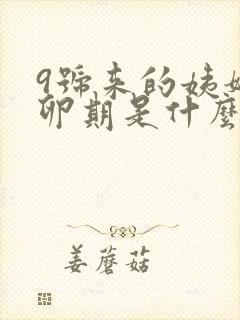 9號来的姨
卯期是什麼
姜蘑菇